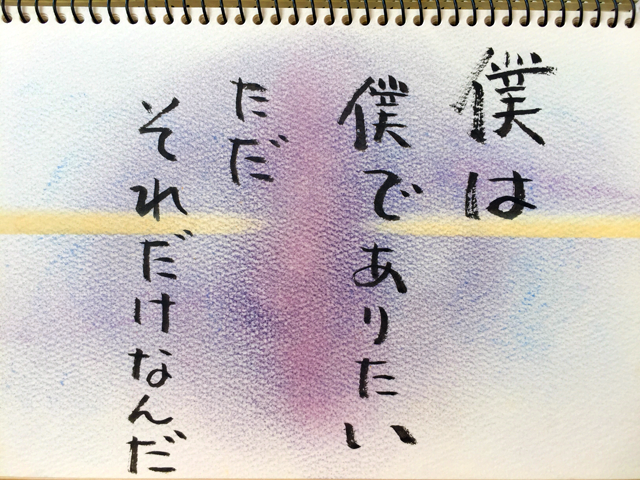 僕は
僕でありたい
ただ
それだけなんだ